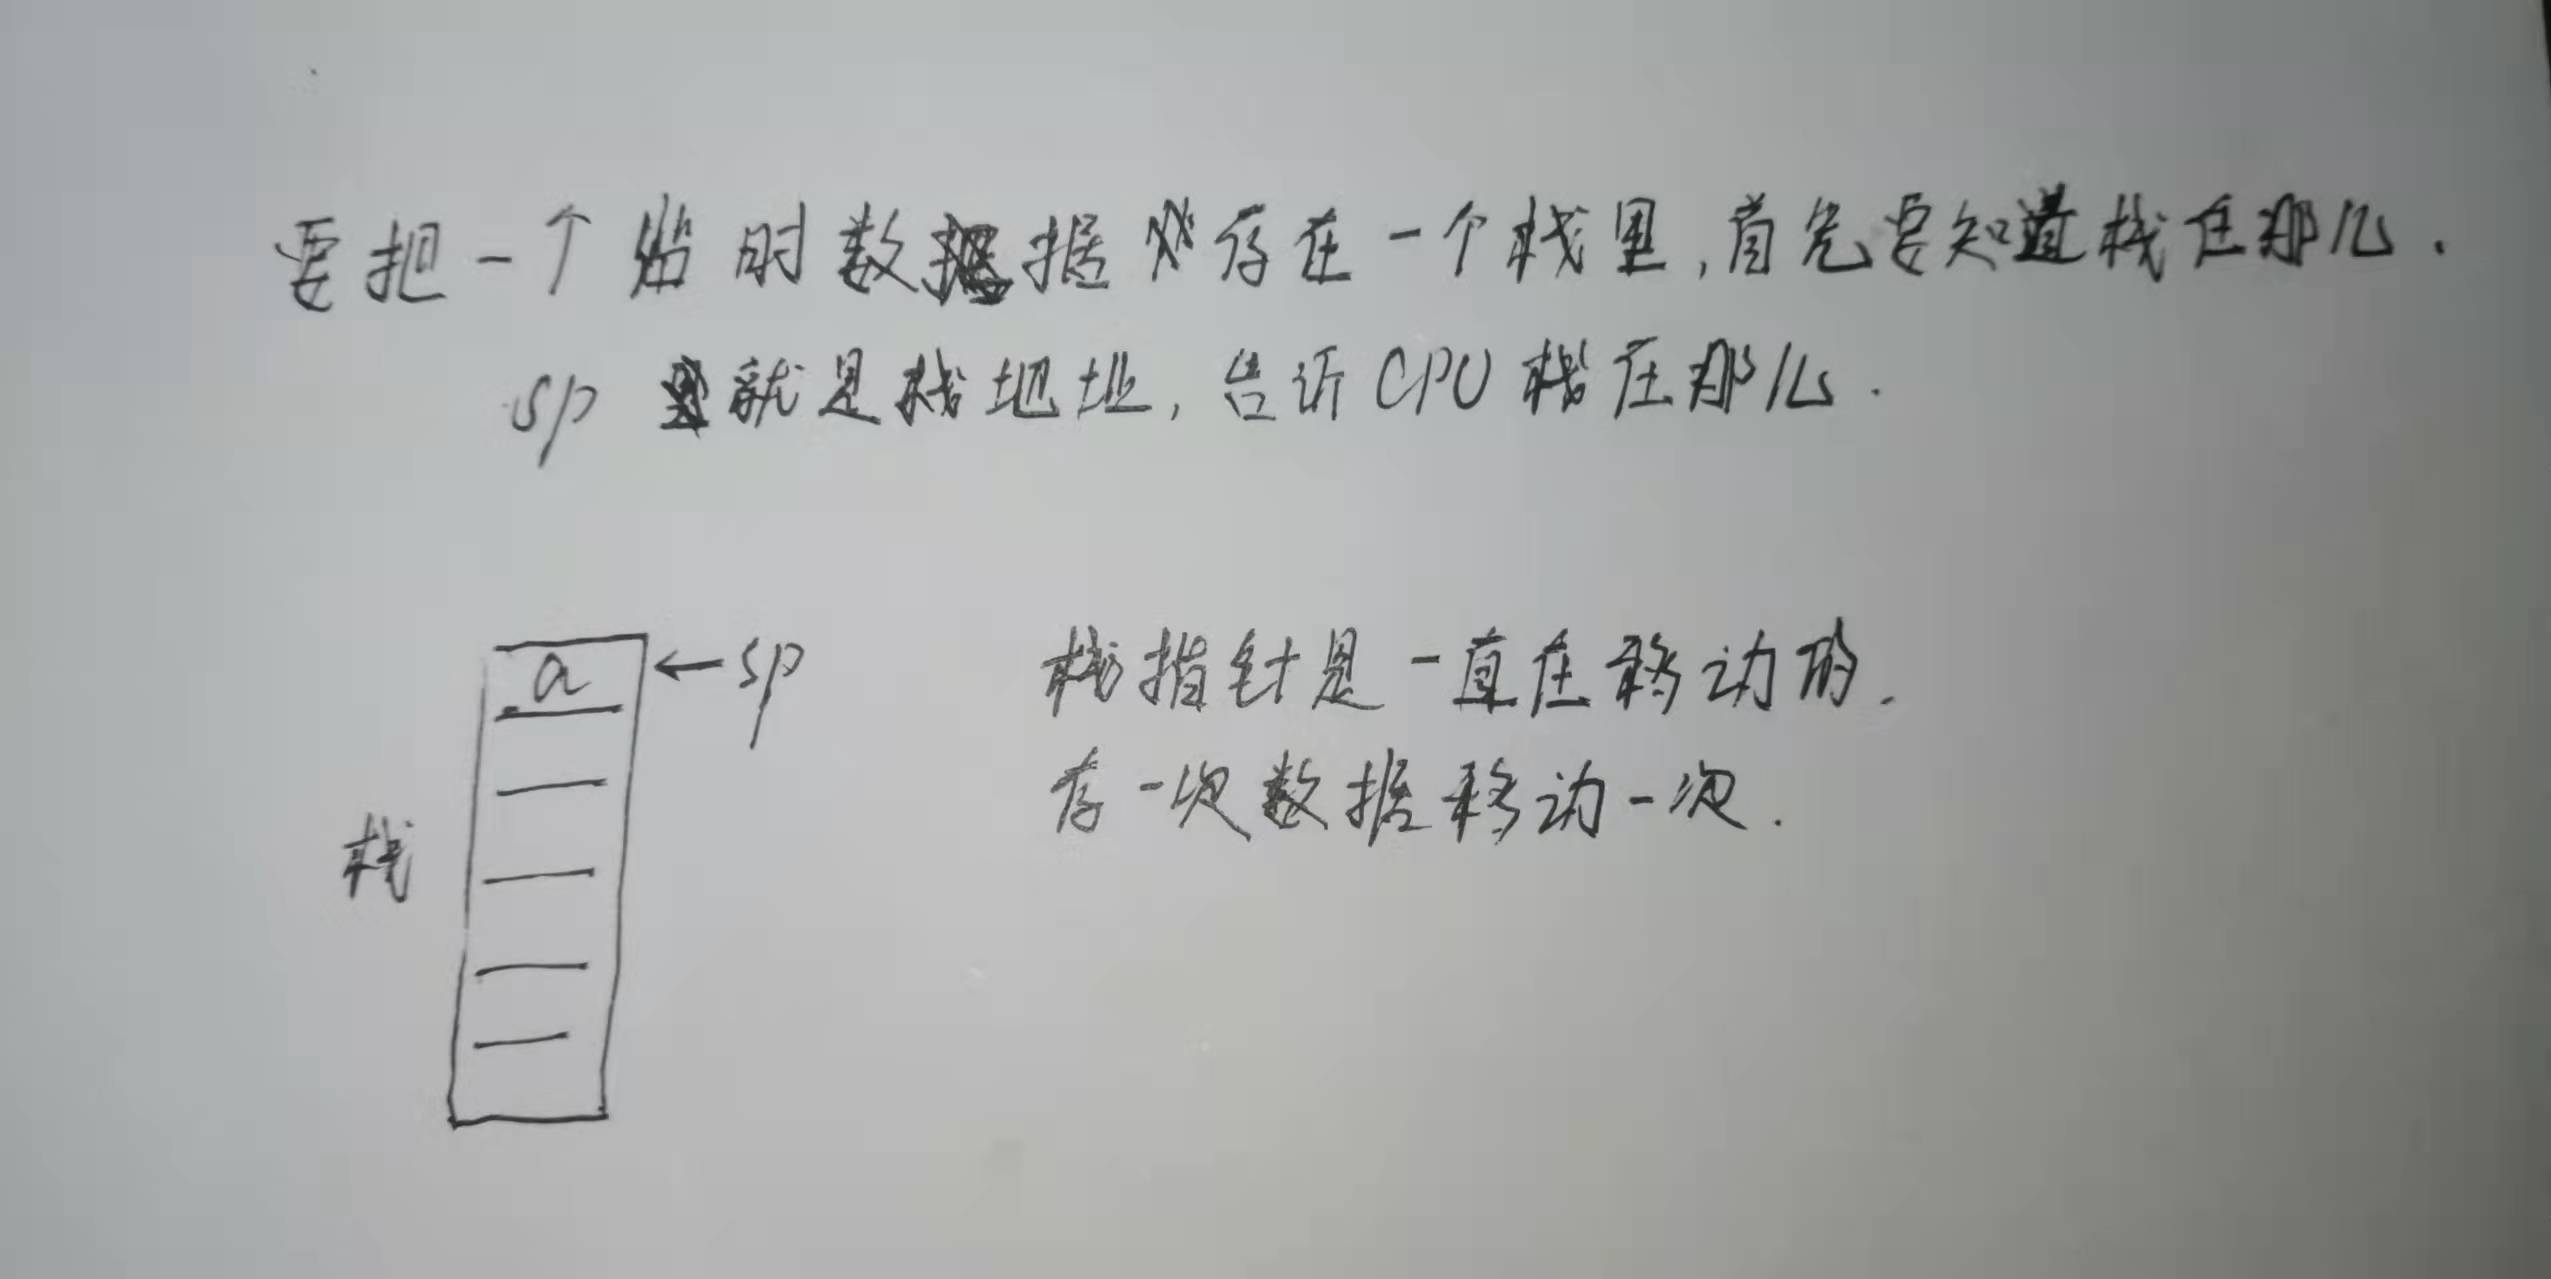 要把一个临时数据存在一个栈里,首先要知道栈在那儿.
sp 就是栈地址,告诉CPU栈在那儿.
a ← sp
栈指针是一直在移动的.
存一次数据移动一次.
栈